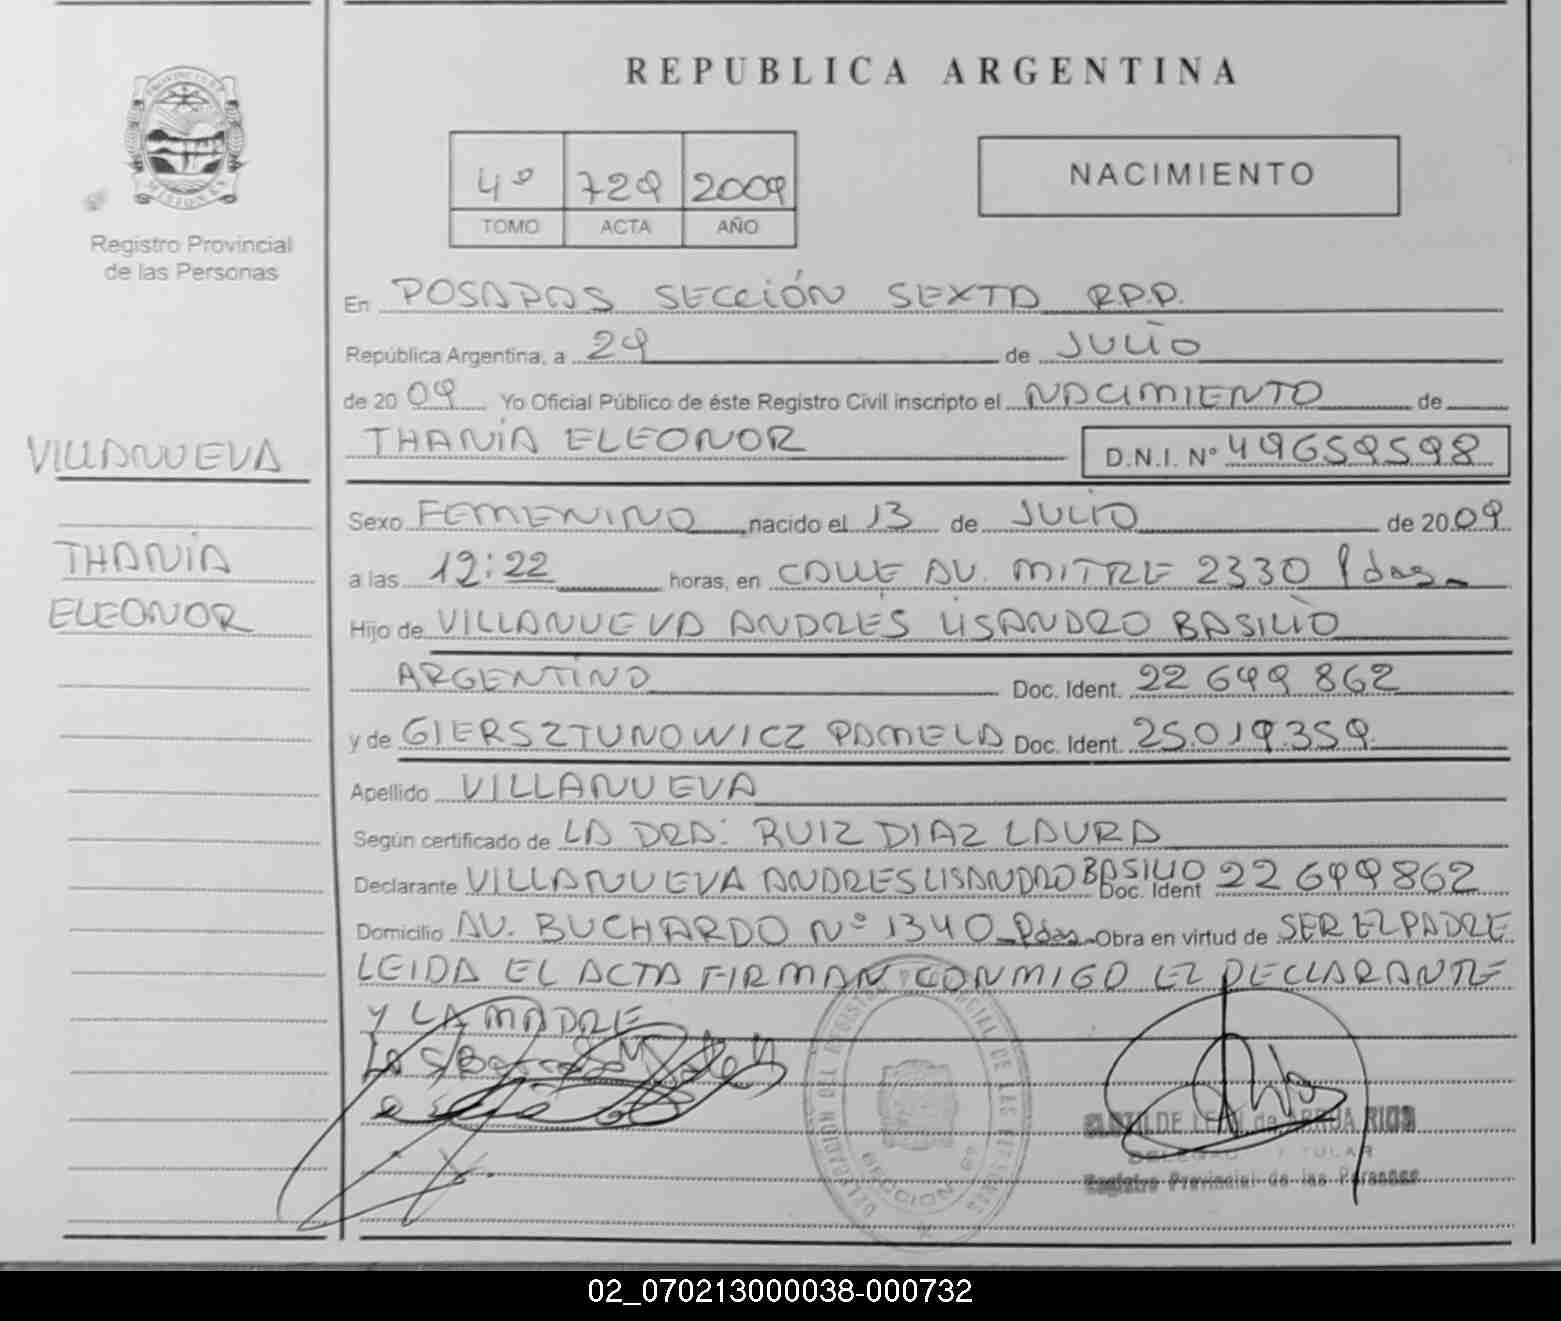 REPUBLICA ARGENTINA
PROVINCIA DE MISIONES
Registro Provincial
de las Personas
4º 729 2009
TOMO ACTA AÑO
NACIMIENTO
En POSADAS SECCIÓN SEXTA R.P.P.
República Argentina, a 29 de JULIO
de 2009 Yo Oficial Público de éste Registro Civil inscripto el NACIMIENTO de
THANIA ELEONOR D.N.I. Nº 49659598
VILLANUEVA
THANIA
ELEONOR
Sexo FEMENINO nacido el 13 de JULIO de 2009
a las 12:22 horas, en CALLE AV. MITRE 2330 Pdas
Hijo de VILLANUEVA ANDRES LISANDRO BASILIO
ARGENTINO Doc. Ident. 22 699 862
y de GIERSZTUNOWICZ PAMELA Doc. Ident. 25.019.359
Apellido VILLANUEVA
Según certificado de LA DRA: RUIZ DIAZ LAURA
Declarante VILLANUEVA ANDRES LISANDRO BASILIO Doc. Ident 22 699862
Domicilio AV. BUCHARDO Nº 1340 Pdas Obra en virtud de SER EL PADRE
LEIDA EL ACTA FIRMAN CONMIGO EL DECLARANTE
Y LA MADRE
DELEGACION DEL REGISTRO PROVINCIAL DE LAS PERSONAS
SECCION 6º
DE LEON de ARRUA RIOS
TITULAR
Registro Provincial de las Personas
02_070213000038-000732